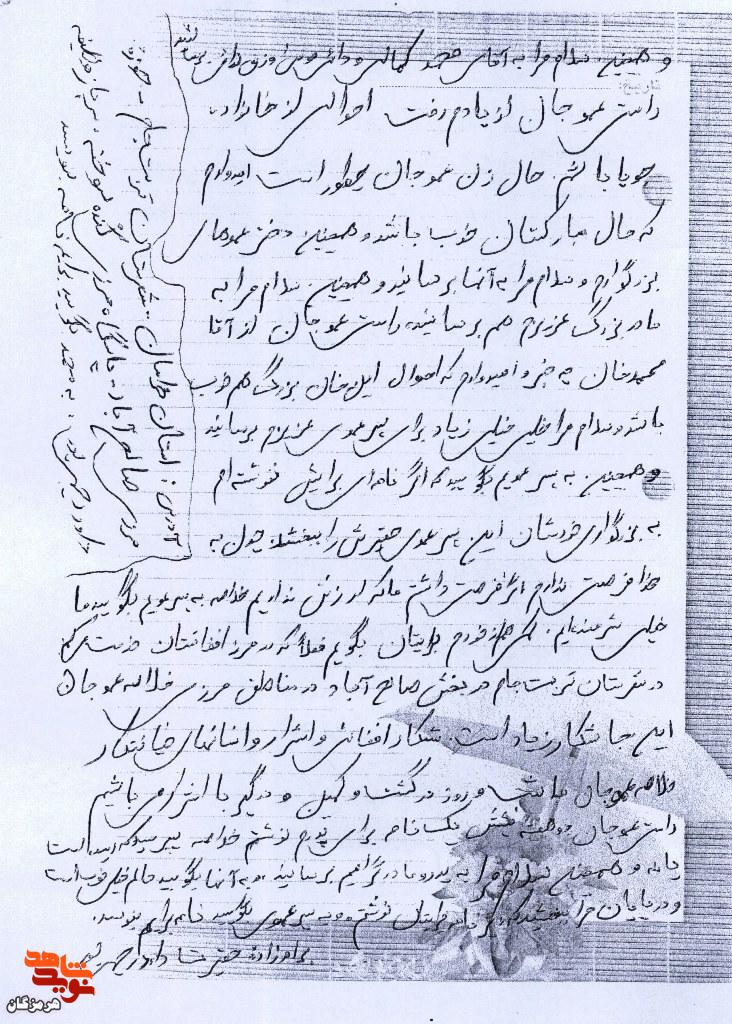 و همچنین سلام مرا به آقای محمد کمالی و دائی برسانید
راستی عمو جان از یادم رفت احوالی از خانواده
جویا باشم. حال زن عمو جان چطور است امیدوارم
که حال مبارکتان خوب باشد و همچنین دختر عموهای
بزرگوارم و سلام مرا به آنها برسانید و همچنین سلام مرا به
مادر بزرگ عزیزم هم برسانید، راستی عمو جان از آقا
محمد خان چه خبر و امیدوارم که احوال این خان بزرگ هم خوب
باشد و سلام مرا خیلی خیلی زیاد برای پسر عموی عزیزم برسانید
و همچنین به پسر عمویم بگویید که اگر نامه‌ای برایش ننوشته‌ام
به بزرگواری خودشان این پسر عموی حقیرش را ببخشد چون به
خدا فرصتی ندارم اگر فرصتی داشتم ما که ارزش نداریم خلاصه به پسر عمویم بگویید ما
خیلی شرمنده‌ایم. کمی هم از خودم برایتان بگویم فعلاً که در مرز افغانستان خدمت می‌کنم
در شهرستان تربت جام در بخش صالح آباد در مناطق مرزی خلاصه عمو جان
این جا شکار زیاد است. شکار افغانی و اشرار و انسانهای خیانتکار
خلاصه عمو جان ما شب و روز در گشت و کمین و درگیر با اشرار می باشیم
راستی عمو جان دو هفته پیش یک نامه برای پدرم نوشتم خواهید پرسید که رسیده است
یا نه و همچنین سلام مرا به پدر و مادر گرامیم برسانید و به آنها بگویید حالم خیلی خوب است
و در پایان مرا ببخشید که نامه برایتان نوشتم و به پسر عموی بگویید نامه برایم بنویسد.
برادرزاده حقیر شما داود رحیمی پور
آدرس: استان خراسان - شهرستان تربت جام - حوزه
مرزی صالح آباد - پاسگاه مرزی گنده سوخته، سرباز وظیفه
داود رحیمی پور، به محمد بگویید برایم نامه بنویسد
تاریخ:
شاهد
نوید
هرمزگان